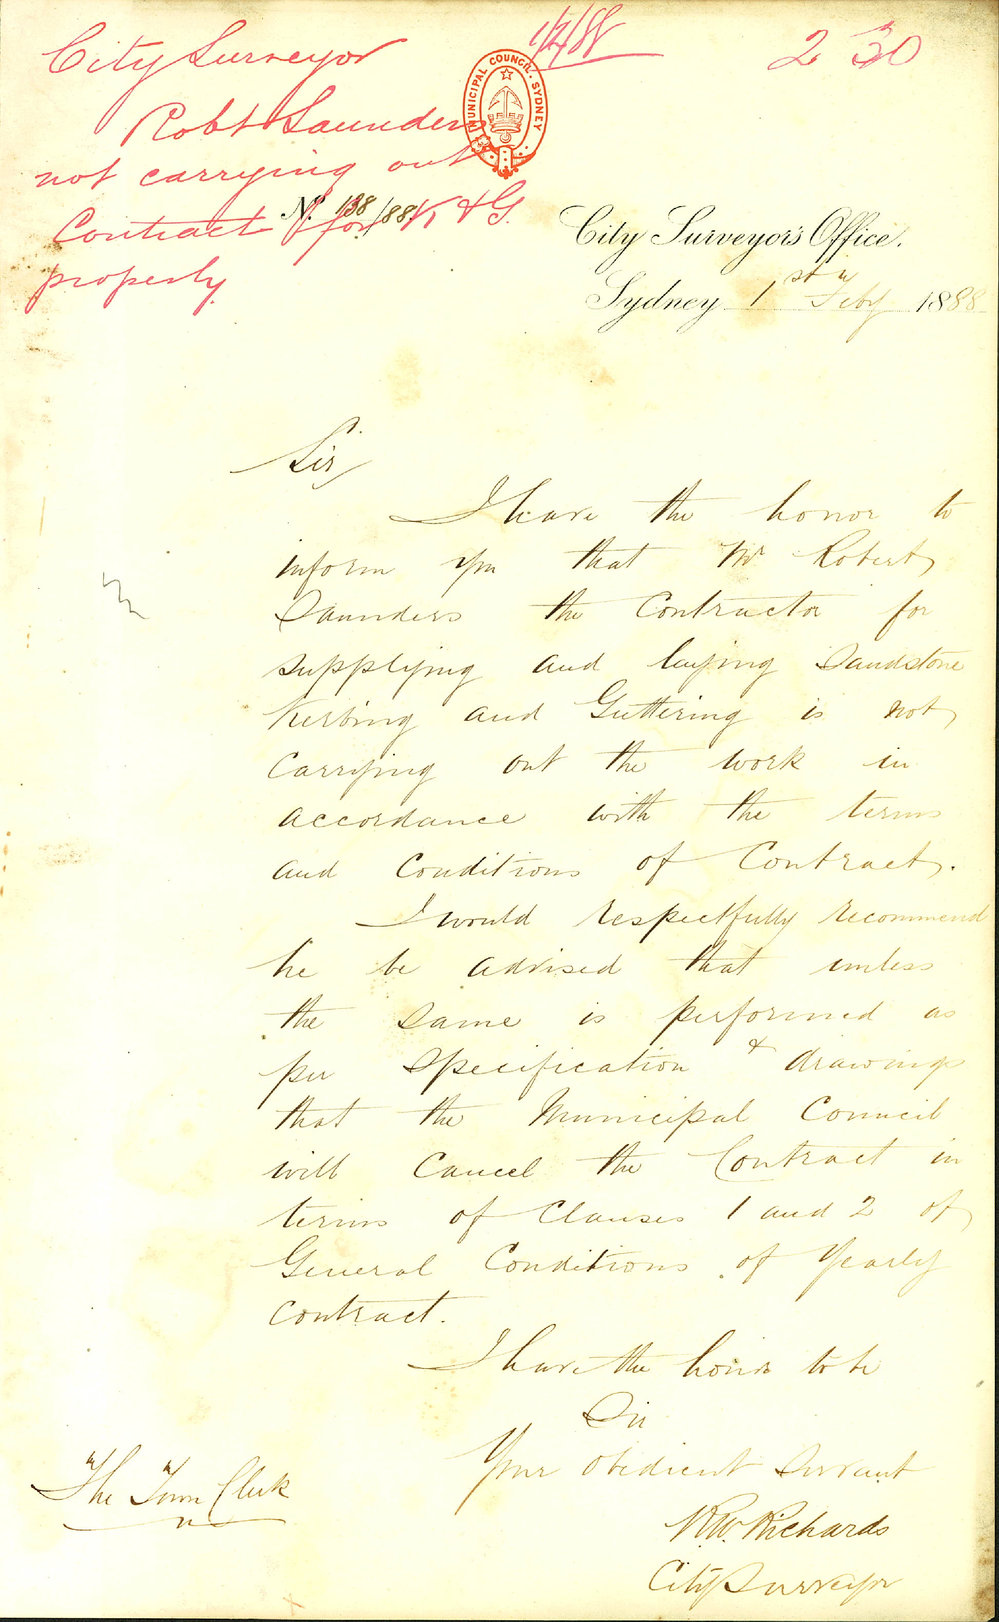 1/2/88
230
City Surveyor
Robt Saunders
not carrying out
Contract for K & G.
properly.
MUNICIPAL COUNCIL. SYDNEY
No. 138/88.
City Surveyor's Office.
Sydney 1st Feby 1888
Sir
I have the honor to
inform you that Mr Robert
Saunders the Contractor for
supplying and laying Sandstone
Kerbing and Guttering is not
carrying out the work in
accordance with the terms
and Conditions of Contract.
I would respectfully recommend
he be advised that unless
the same is performed as
per Specification & drawings
that the Municipal Council
will Cancel the Contract in
terms of Clauses 1 and 2 of
General Conditions of Yearly
Contract.
I have the honor to be
Sir
Your obedient Servant
R.W. Richards
City Surveyor
The Town Clerk